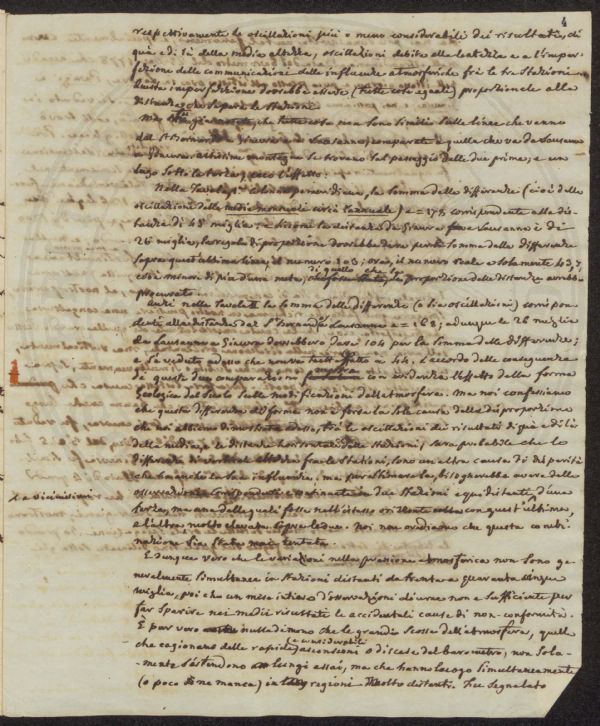 4
respettivamente le oscillazioni più o meno considerabili dei risultati, di
quà e di là della media altezza, oscillazioni debite alla latezza e a l'imper-
fezione delle communicazione delle influenze atmosferiche frà le tre stazioni
questa imperfezione dovrebbe essere (tutte cose eguali) proporzionale alla
distanza che separa le stazioni.
Ma già notate, che tutte cose non sono simili sulle linee che vanno
dal St Bernardo a Ginevra e a Lausanna, comparate a quella che va da Lausana
a Ginevra: altissime montagne se trovano sul passaggio delle due prime, e un
lago sotto la terza; ecco l'effetto:
Nella Tavola abbiamo veduto, la somma delle differenze (cioè delle
oscillazioni delle medie mensuali circà l'annuale) e = 178 corrispondente alla dis-
tanza di 45 miglia: e siccome la distanza da Ginevra a Lausanna è di
26 miglia, la regola di proporzione dovrebbe dare per la somma delle differenze
sopra quest'ultima linea, il numero 103; ora, il numero reale e solamente 43,7,
cioè minore di più d'una metà, di quello che la proporzione delle distanze avrebbe
procurato.
Anzi nella Tavola la somma delle differenze (o sia oscillazioni) corrispon
dente alla distanza dal St Bernardo a Lausanna e = 168; adunque le 26 miglia
da Lausanna a Ginevra dovrebbero dare 104 per la somma delle differenze;
e si è veduto adesso che non è in effetto che 44. L'accordo delle conseguenze
di queste due comparazioni mostra con evidenza l'effetto della forma
geologica del suolo sulle modificazioni dell'atmosfera. Ma noi confessiamo
che questa differenza di forme non è forse la sola causa della disproporzione
che noi abbiamo dimostrata adesso, trà le oscillazioni dei risultati di quà e di là
della media, e le distanze horizontali delle stazioni; sarà probabile che la
differenza di verticale altezza frà le stazioni, sono un altra causa di disparità
che ha anche la sua influenza; ma, per stimarla, bisognarebbe avere delle
osservazioni corrispondenti e ostinate in due stazioni equidistanti d'una
+ e vicinissimi
terza, ma una della quali fosse nell'istesso orizonte con quest'ultima,
e l'altra molto elevata sopra le due. Noi non crediamo che questa combi-
nazione sia stata mai tentata.
È dunque vero che le variazioni nella pressione atmosferica non sono ge-
neralmente simultanee in stazioni distanti da trenta a quaranta cinque
miglia, poi che un mese intiero d'osservazioni diurne non è sufficiente per
far sparire nei medii risultati le accidentali cause di non-conformità.
È pur vero nulladimeno che le grandi scosse dell'atmosfera, quelle
che cagionano delle rapide e considerabili ascensioni o discese del barometro, non sola-
-mente s'estendono lungi assai, ma che hanno luogo simultaneamente
(o poco se ne manca) in regioni molto distanti. Fu segnalato